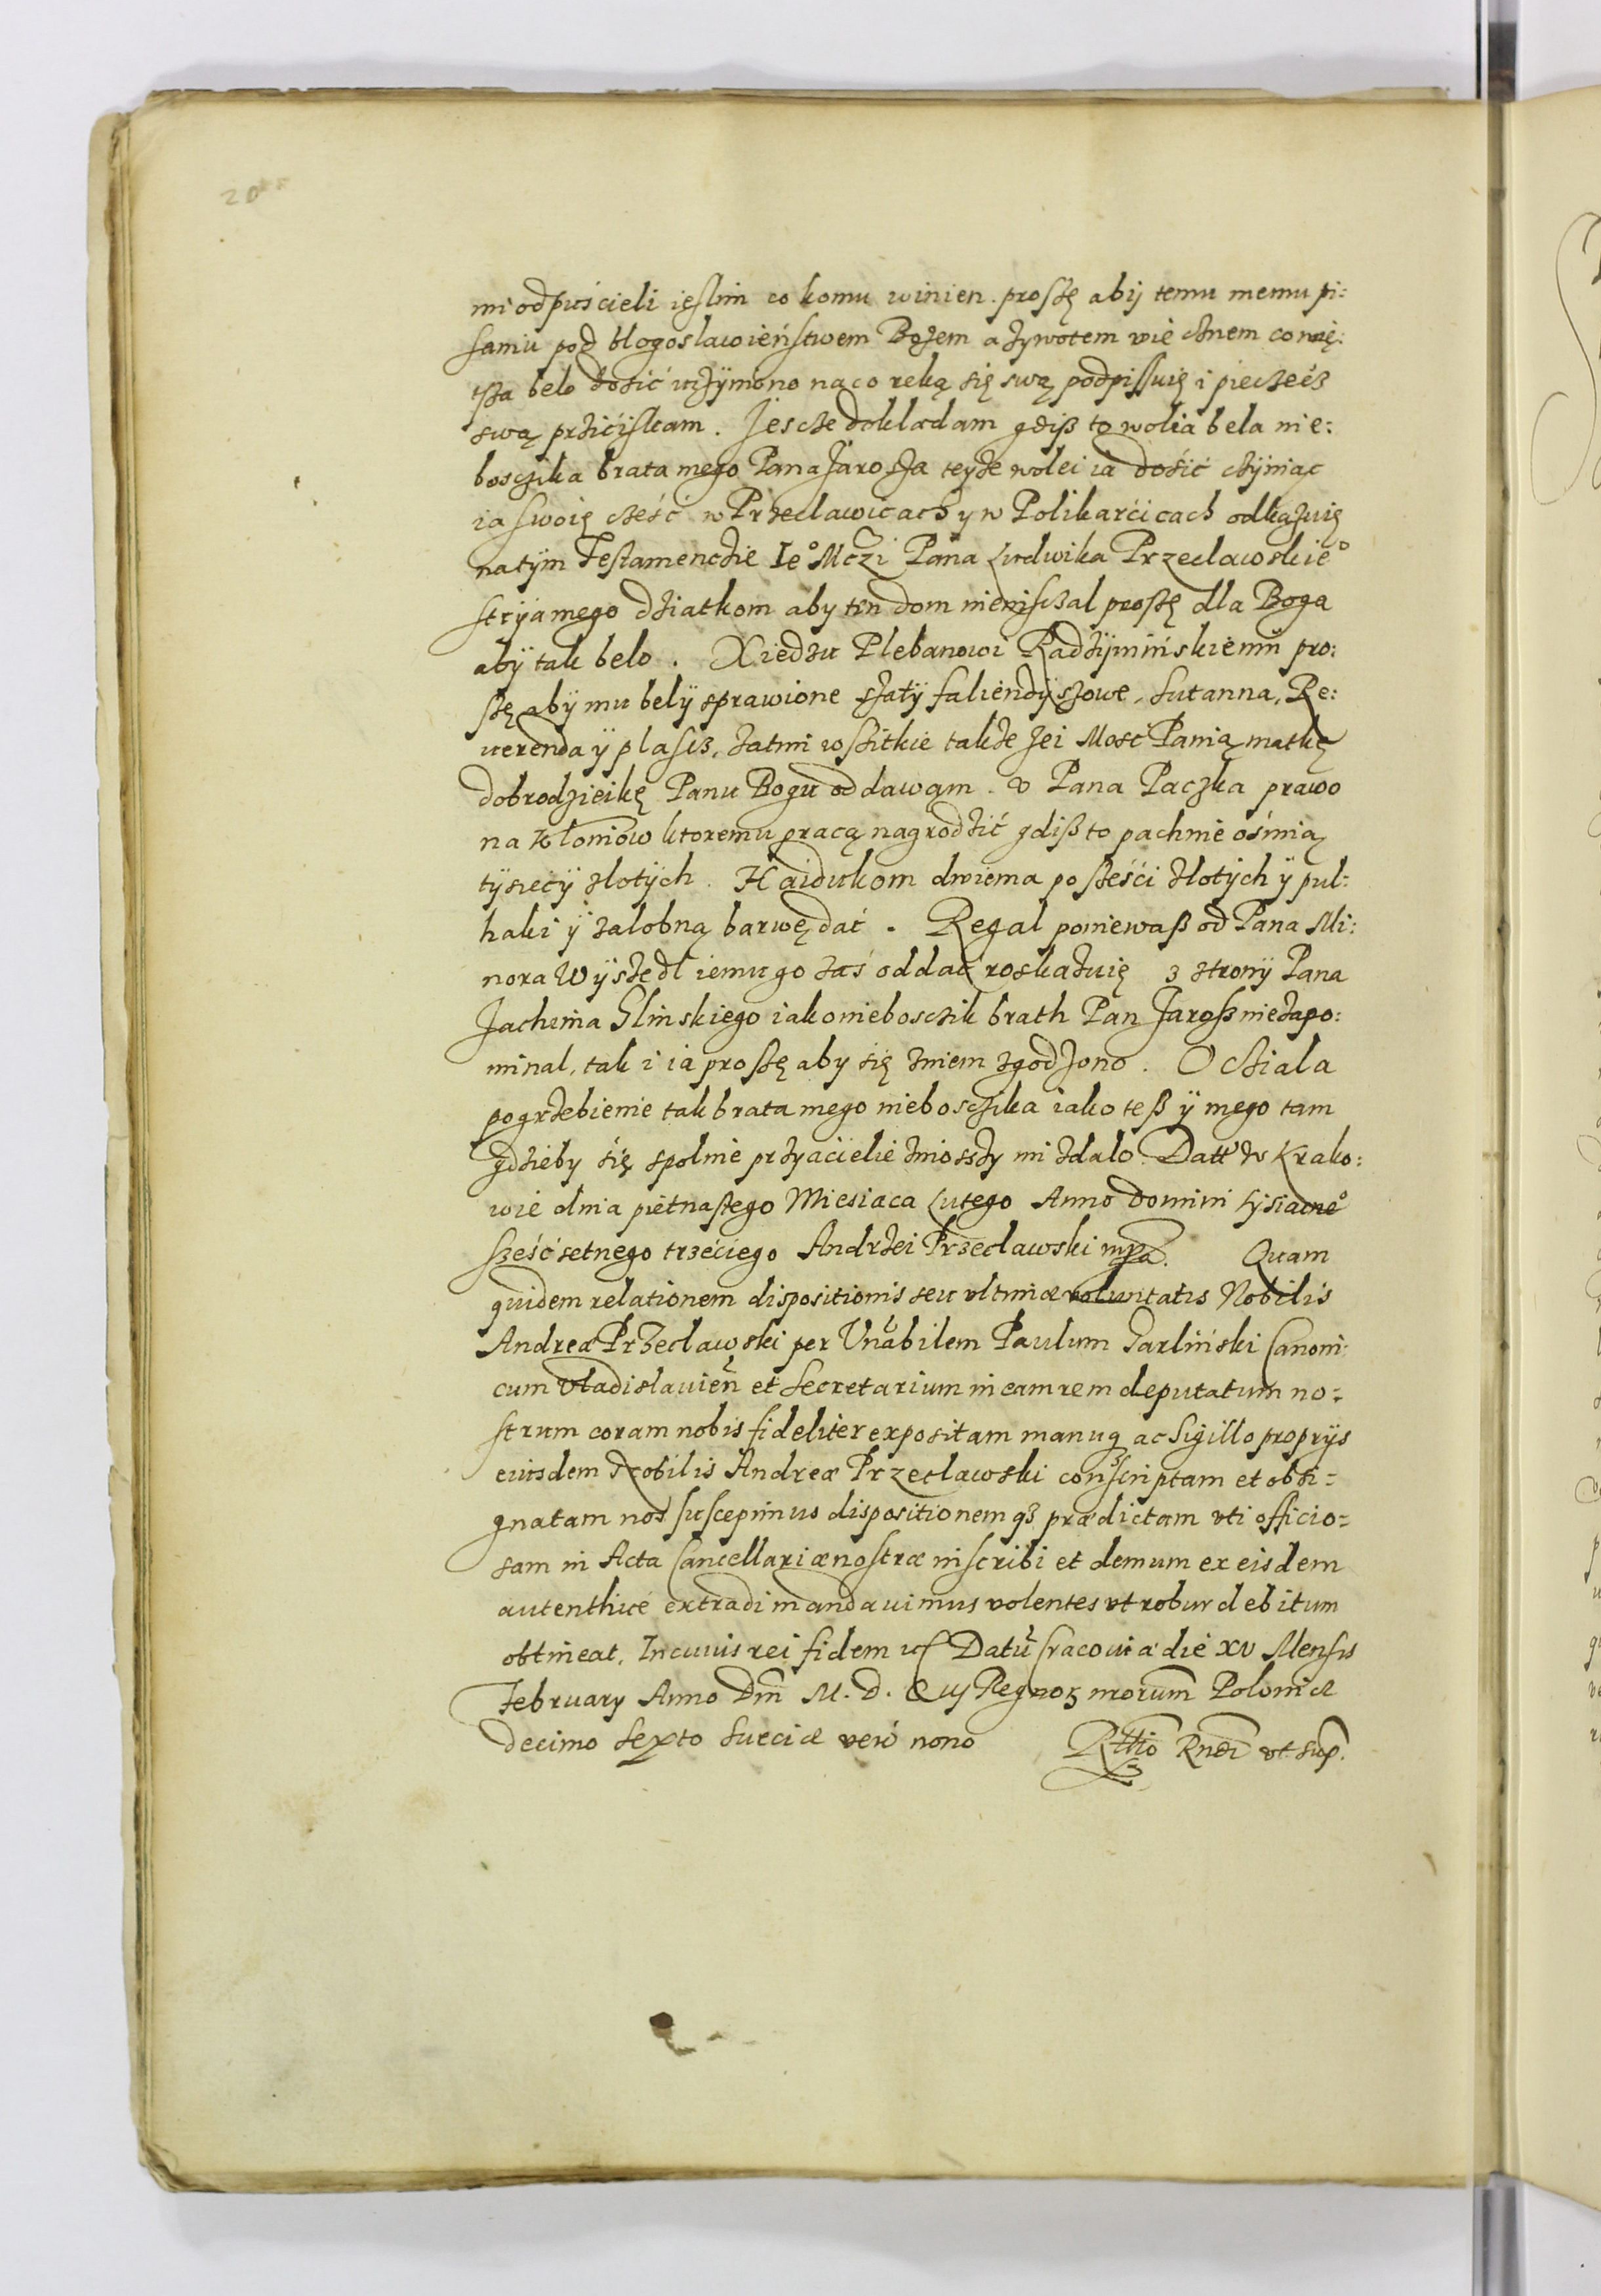 mi odpuścieli ieslim co komu winien. proszę abij temu memu pi:
saniu pod błogosławieństwem Bożem a żywotem wiecznem co nię:
tsza belo dosić uczÿniono na co ręką się swą podpissuię i pieczęcz
swą prziciskam. Jescze dokladam gdiß to wolia bela nie:
bosczika brata mego Pana Jarosza teyże wolei ia dosić cziniąc
ia swoię cześć w Przecławicach y w Polikarcicach odkazuię
na tÿm Testamenczie Ie° Mczi Pana Ludwika Przecławskie°
strÿa mego dziatkom aby ten dom nieniszczal proszę dla Boga
abÿ tak belo. Xiedzu Plebanowi Radzÿmińskiemu pro:
szę abÿ mu belÿ sprawione szatÿ faliendÿszowe, sutanna, Re:
uerenda ÿ plascz, zatmi wszitkie także Jei Mość Panią matkę
dobrodzieikę Panu Bogu oddawam. v Pana Paczka prawo
na Kłoniów ktoremu pracą nagrodzić gdiß to pachnie ośmią
tÿsiecÿ złotÿch. Haidukom dwiema po sześci złotÿch ÿ pul:
haki ÿ żalobną barwę dać. Regal poniewaß od Pana Mi:
nora Wÿszedl iemu go zaś oddać roskazuię z stronÿ Pana
Jachima Glinskiego iako nieboscik brath Pan Jaroß niezapo:
minal, tak i ia proszę aby się zniem zgodzono. O cziala
pogrzebienie tak brata mego niebosczika iako teß ÿ mego tam
gdzieby się spolnie przyacielie zniosszy mi zdalo. Datt w Krako:
wie dnia piętnastego Miesiaca Lutego Anno Domini tysiacne°
sześćsetnego trzeciego Andrzei Przecławski mpa. Quam
quidem relationem dispositionis seu vltimæ voluntatis Nobilis
Andreæ Przecławski per Vnabilem Paulum Jarliński Canoni:
cum Vladislauien et Secretarium in eam rem deputatum no:
strum coram nobis fideliter expositam manuq ac Sigillo proprÿs
eiusdem Nobilis Andreæ Przecławski conscriptam et obsi:
gnatam nos suscepimus dispositionemqз prædictam vti officio:
sam in Acta Cancellariæ nostræ inscribi et demum ex eisdem
autenthicé extradi mandauimus volentes vt robur debitum
obtineat. In cuius rei fidem Datū Cracouiæ die XV Mensis
February Anno Dni M. D. C iij Regnoз nrorum Poloniæ
decimo sexto Sueciæ verò nono Rttio Rndi vt sup.